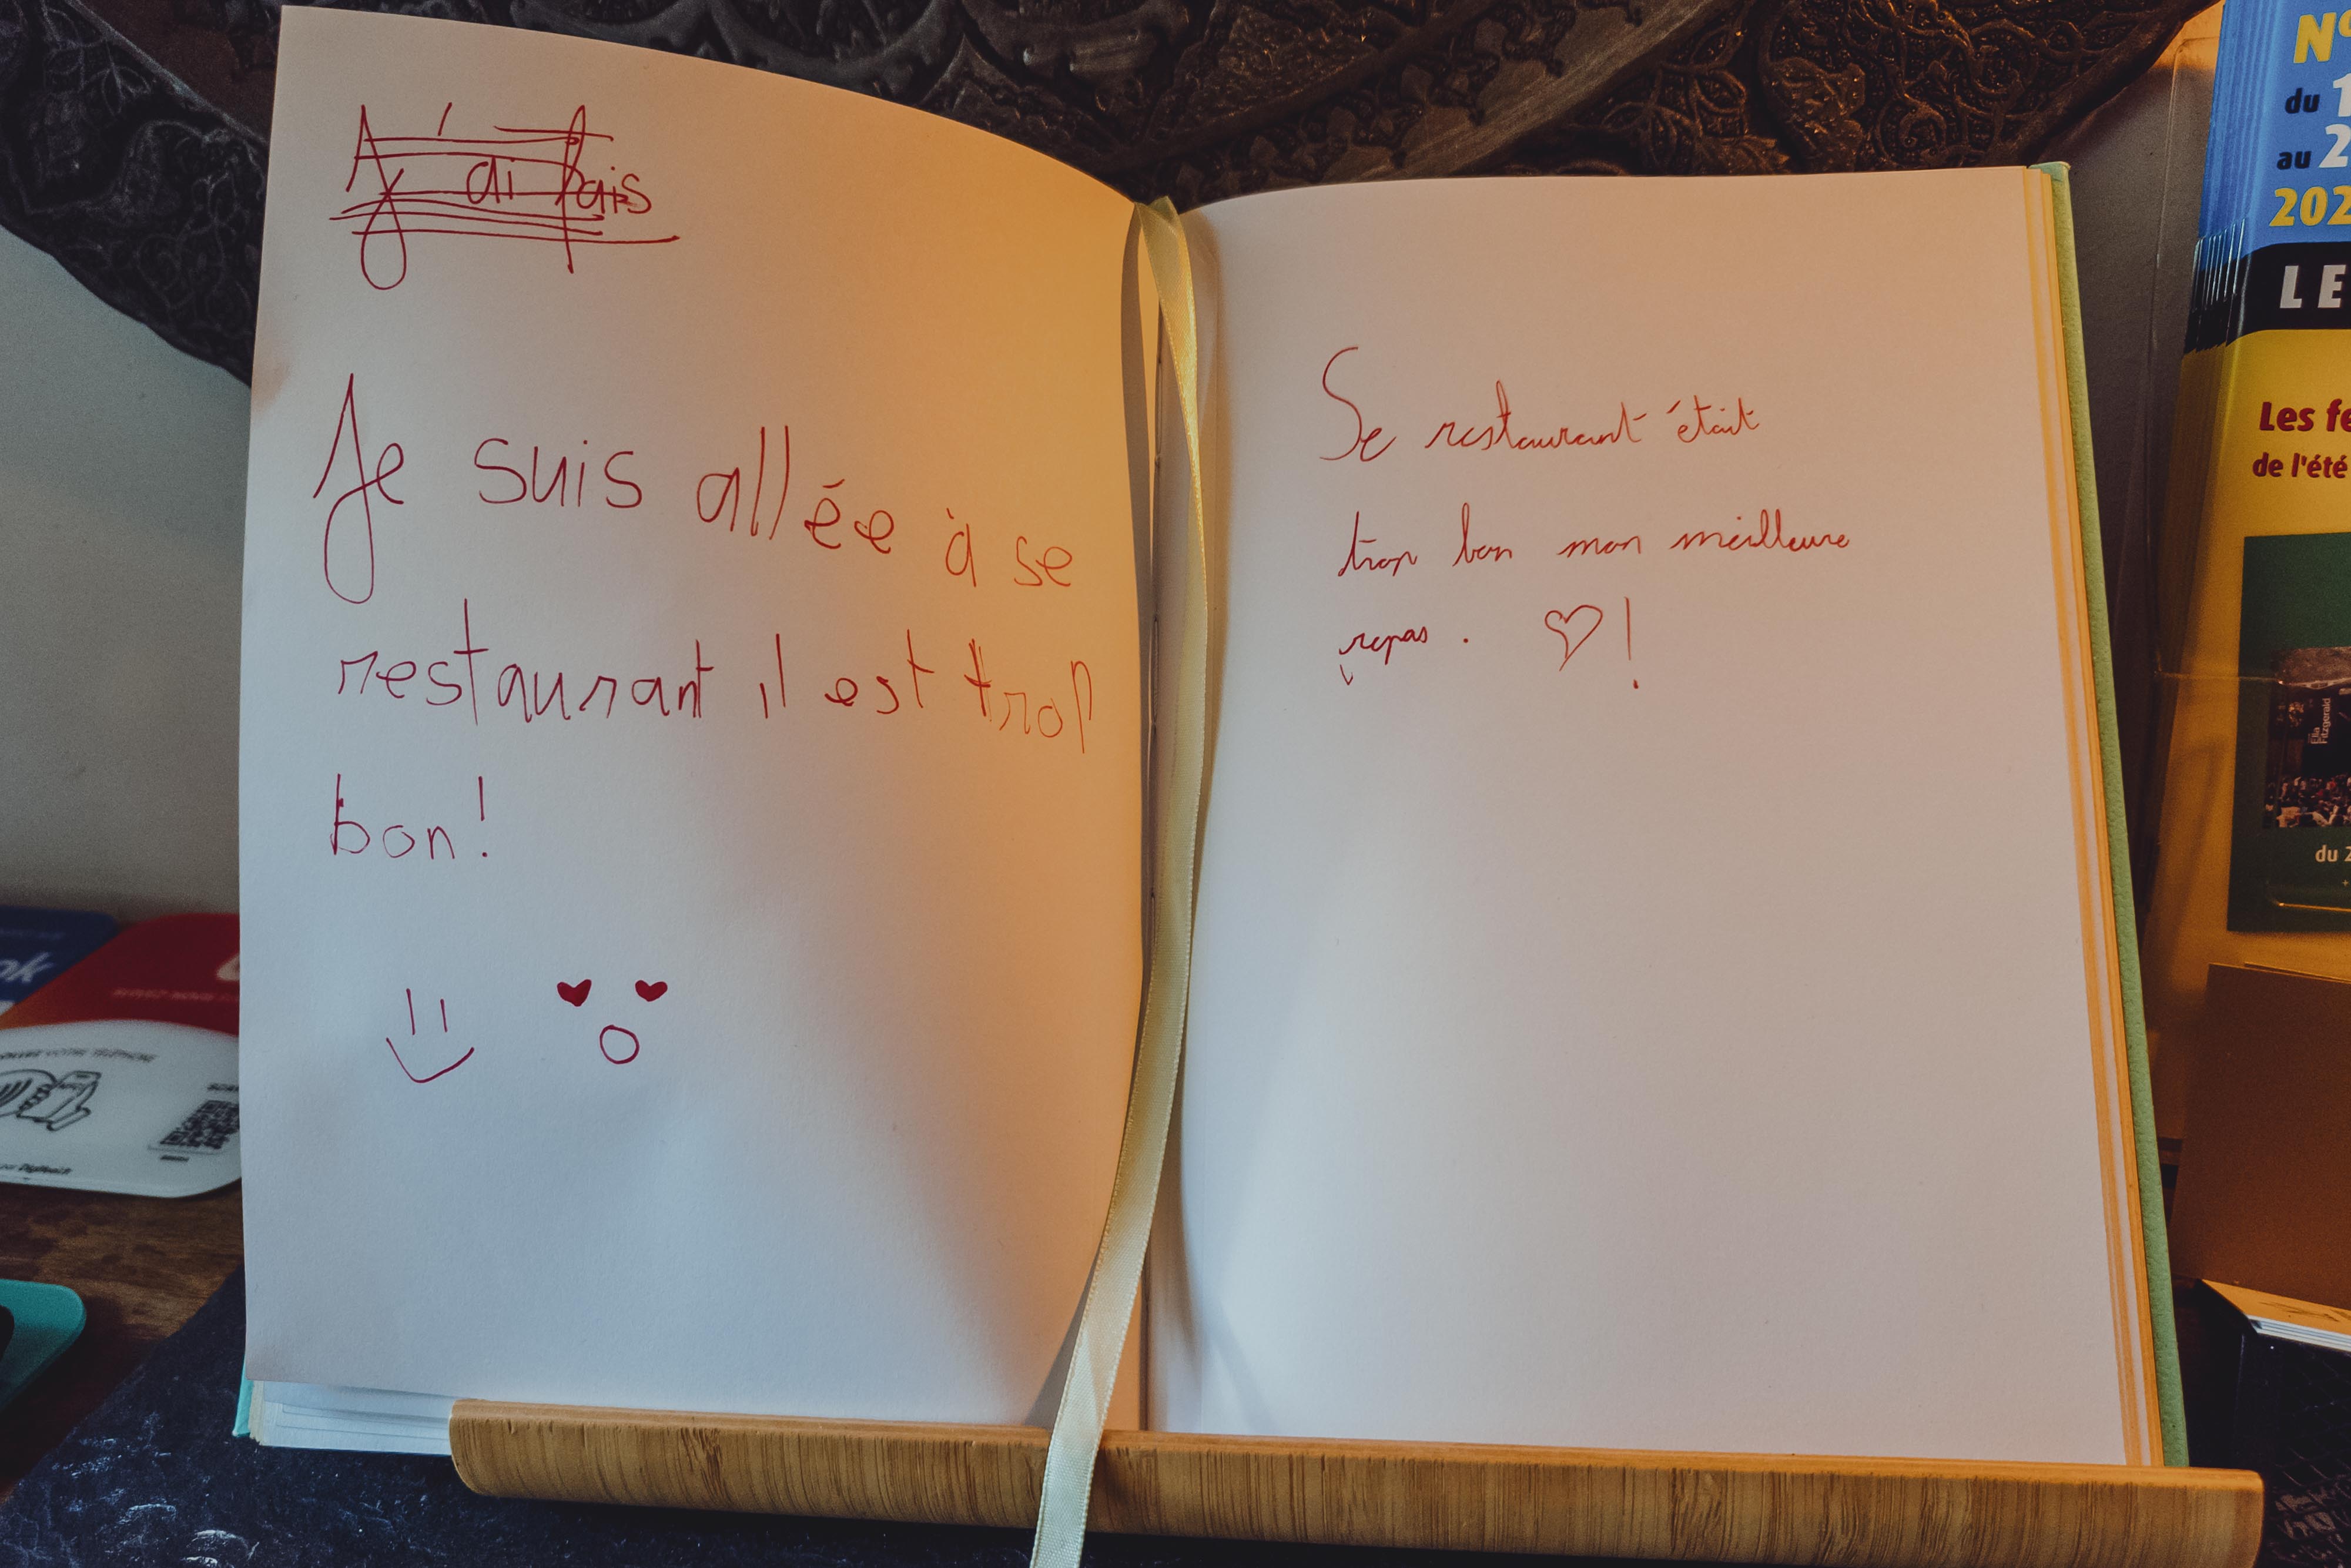 J'ai fais
Je suis allée à se
restaurant il est trop
bon!
Se restaurant était
trop bon mon meilleure
repas. ♡!
du 1
au 2
202
LE
Les fe
de l'été
Ella
Fitzgerald
du 2
ok